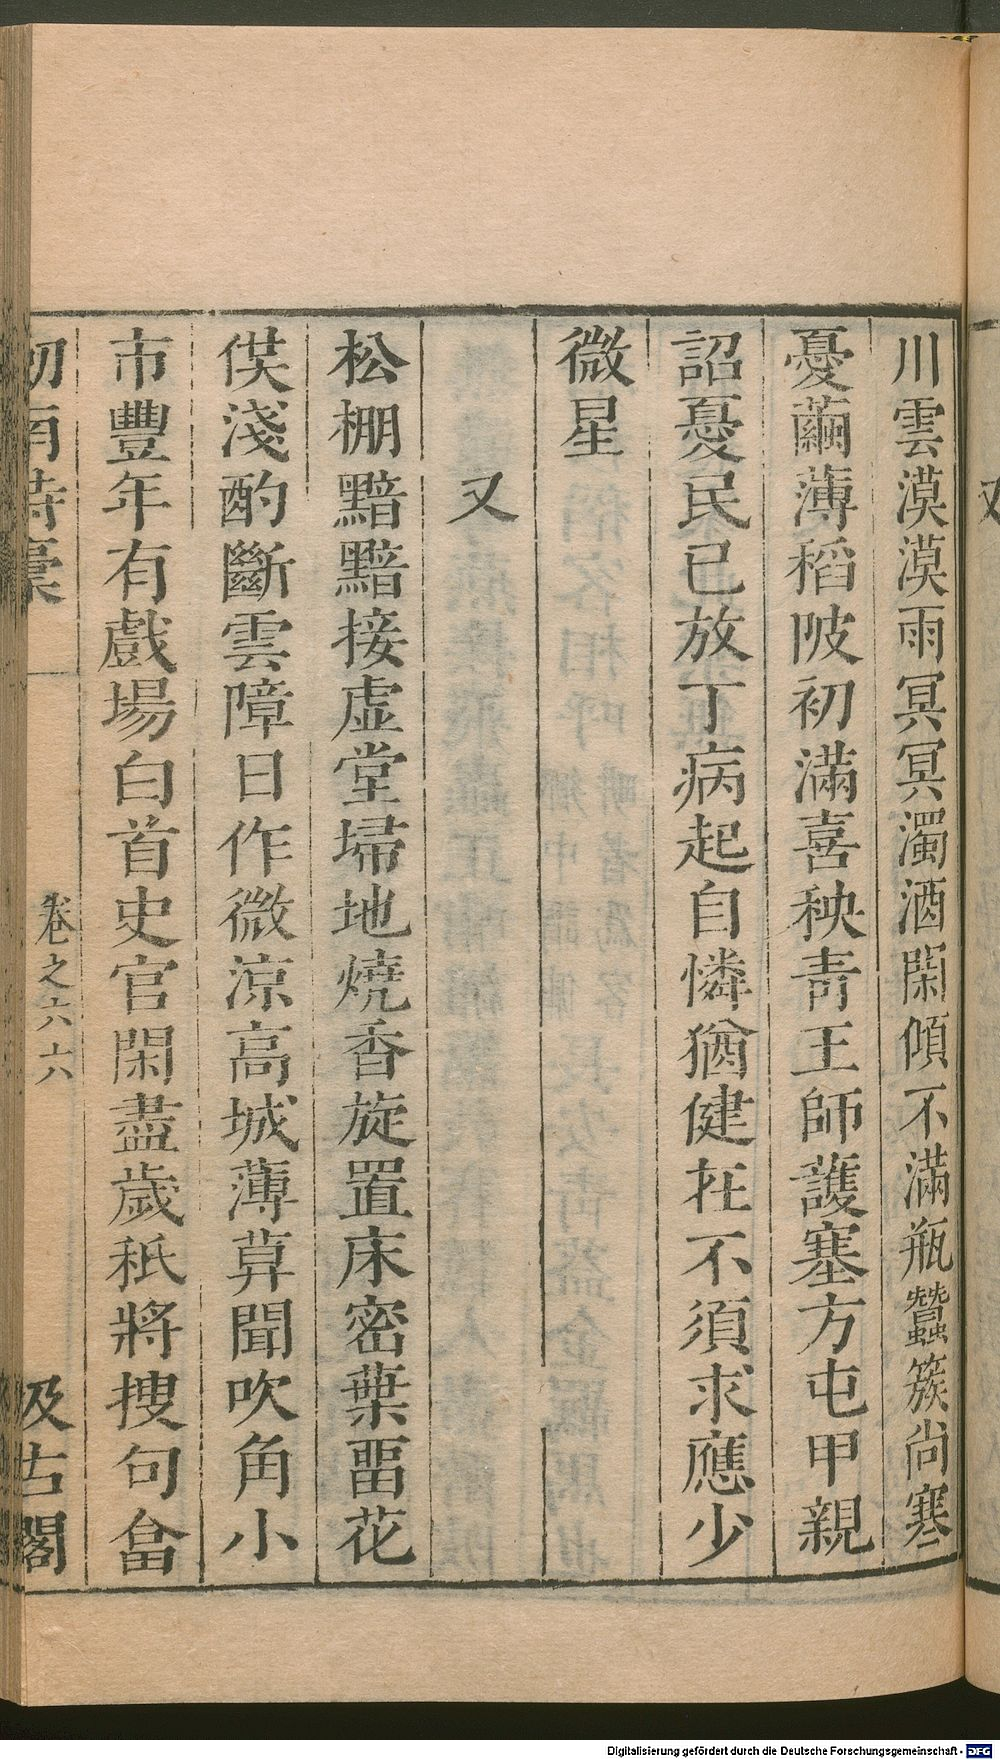 川雲漠漠雨冥冥濁酒閑傾不滿瓶蠶簇尚寒
憂繭薄稻陂初滿喜秧青王師護塞方屯甲親
詔憂民已放丁病起自憐猶健在不須求應少
微星
又
松棚黯黯接虛堂埽地燒香旋置床密葉畱花
供淺酌斷雲障日作微涼高城薄莫聞吹角小
市豐年有戲場白首史官閑盡歲秖將搜句畣
劒南詩稾
卷之六六
汲古閣
Digitalisierung gefördert durch die Deutsche Forschungsgemeinschaft - DFG